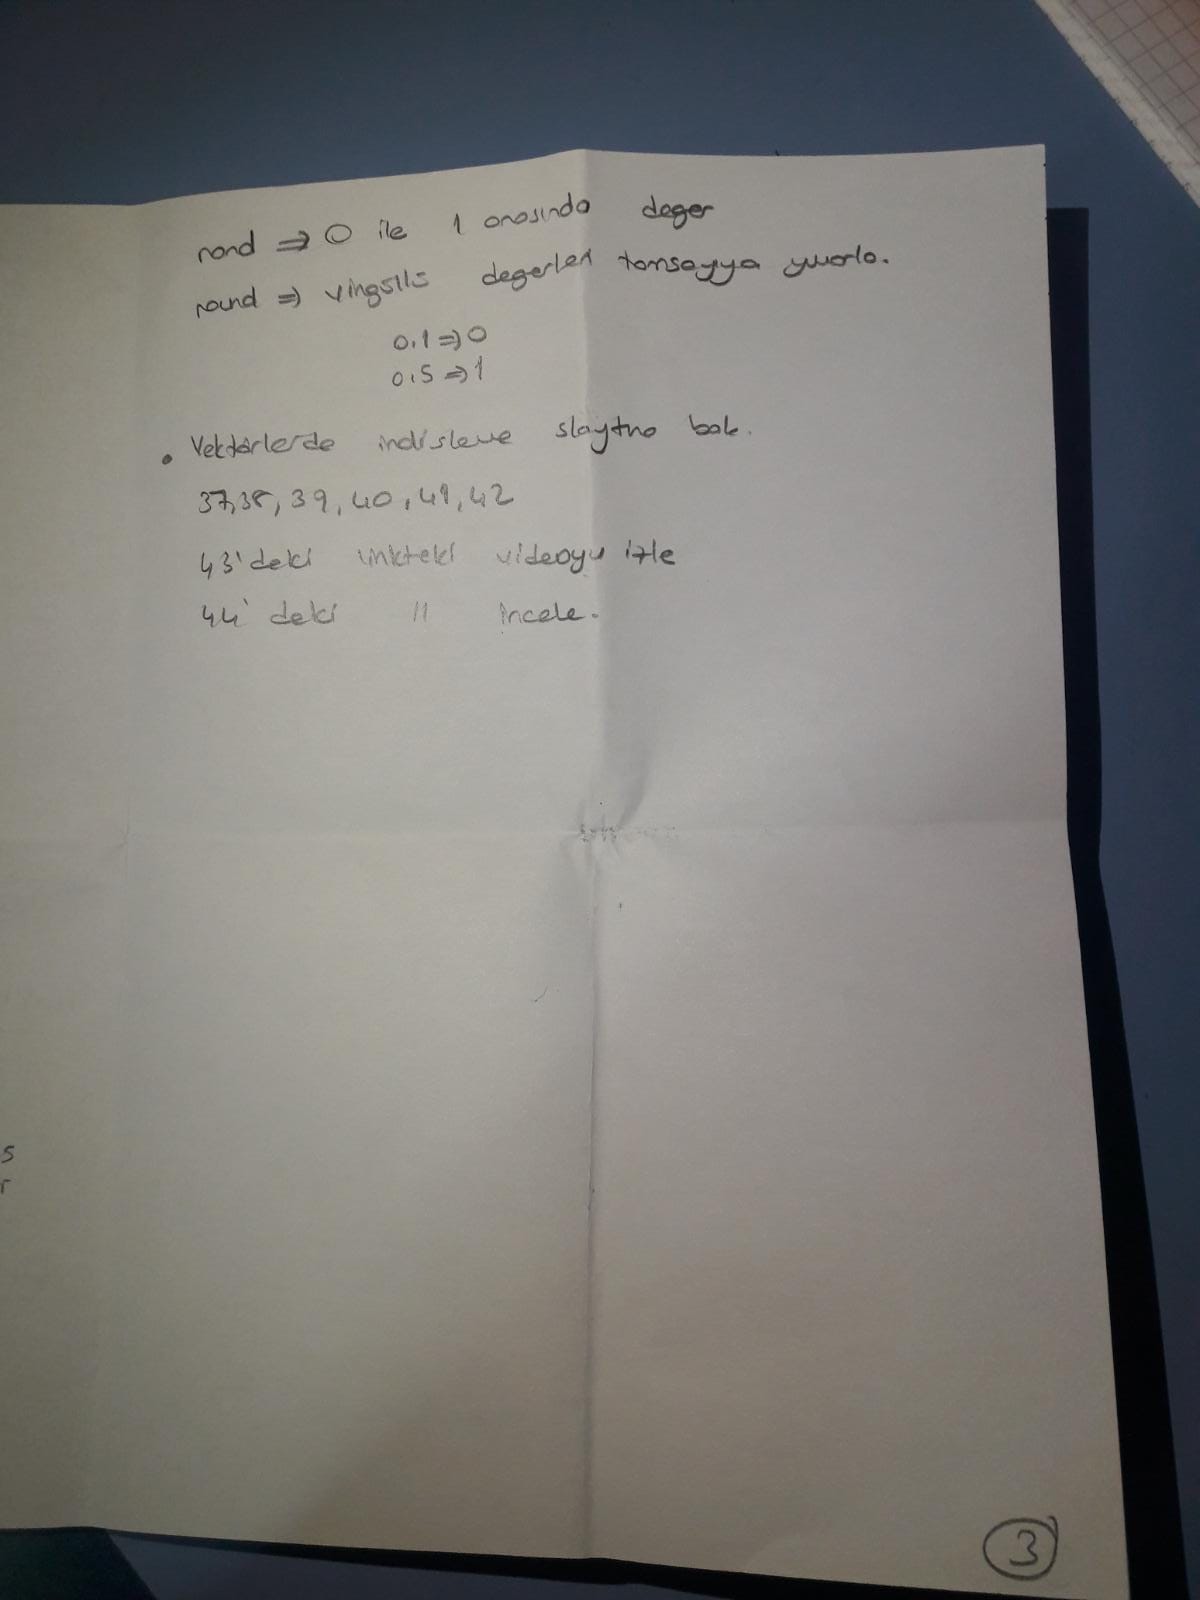 rand ⇒ 0 ile 1 arasında değer
round ⇒ virgüllü değerleri tamsayıya yuvarla.
0,1 ⇒ 0
0,5 ⇒ 1
• Vektörlerde indisleme slaytına bak.
37,38, 39, 40, 41, 42
43'deki linkteki videoyu izle
44' deki " incele.
s
r
3